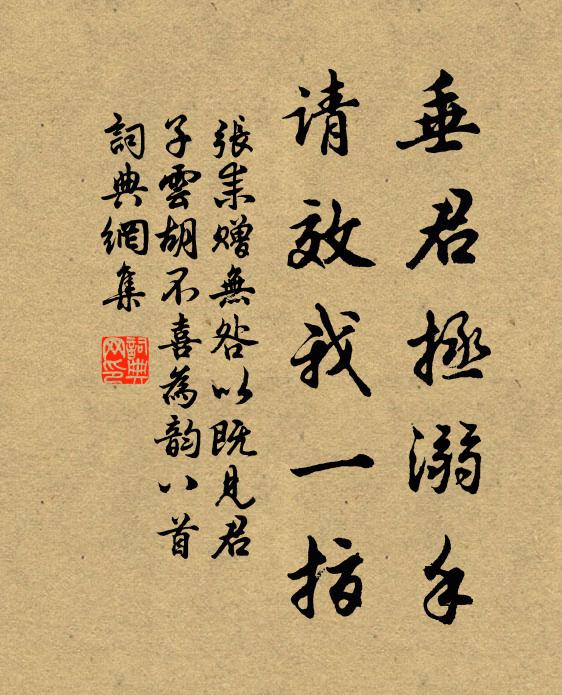 垂君拯溺手
请效我一指
張耒赠無咎以既見君
子雲胡不喜為韵八首
詞典網集
詞典
网印